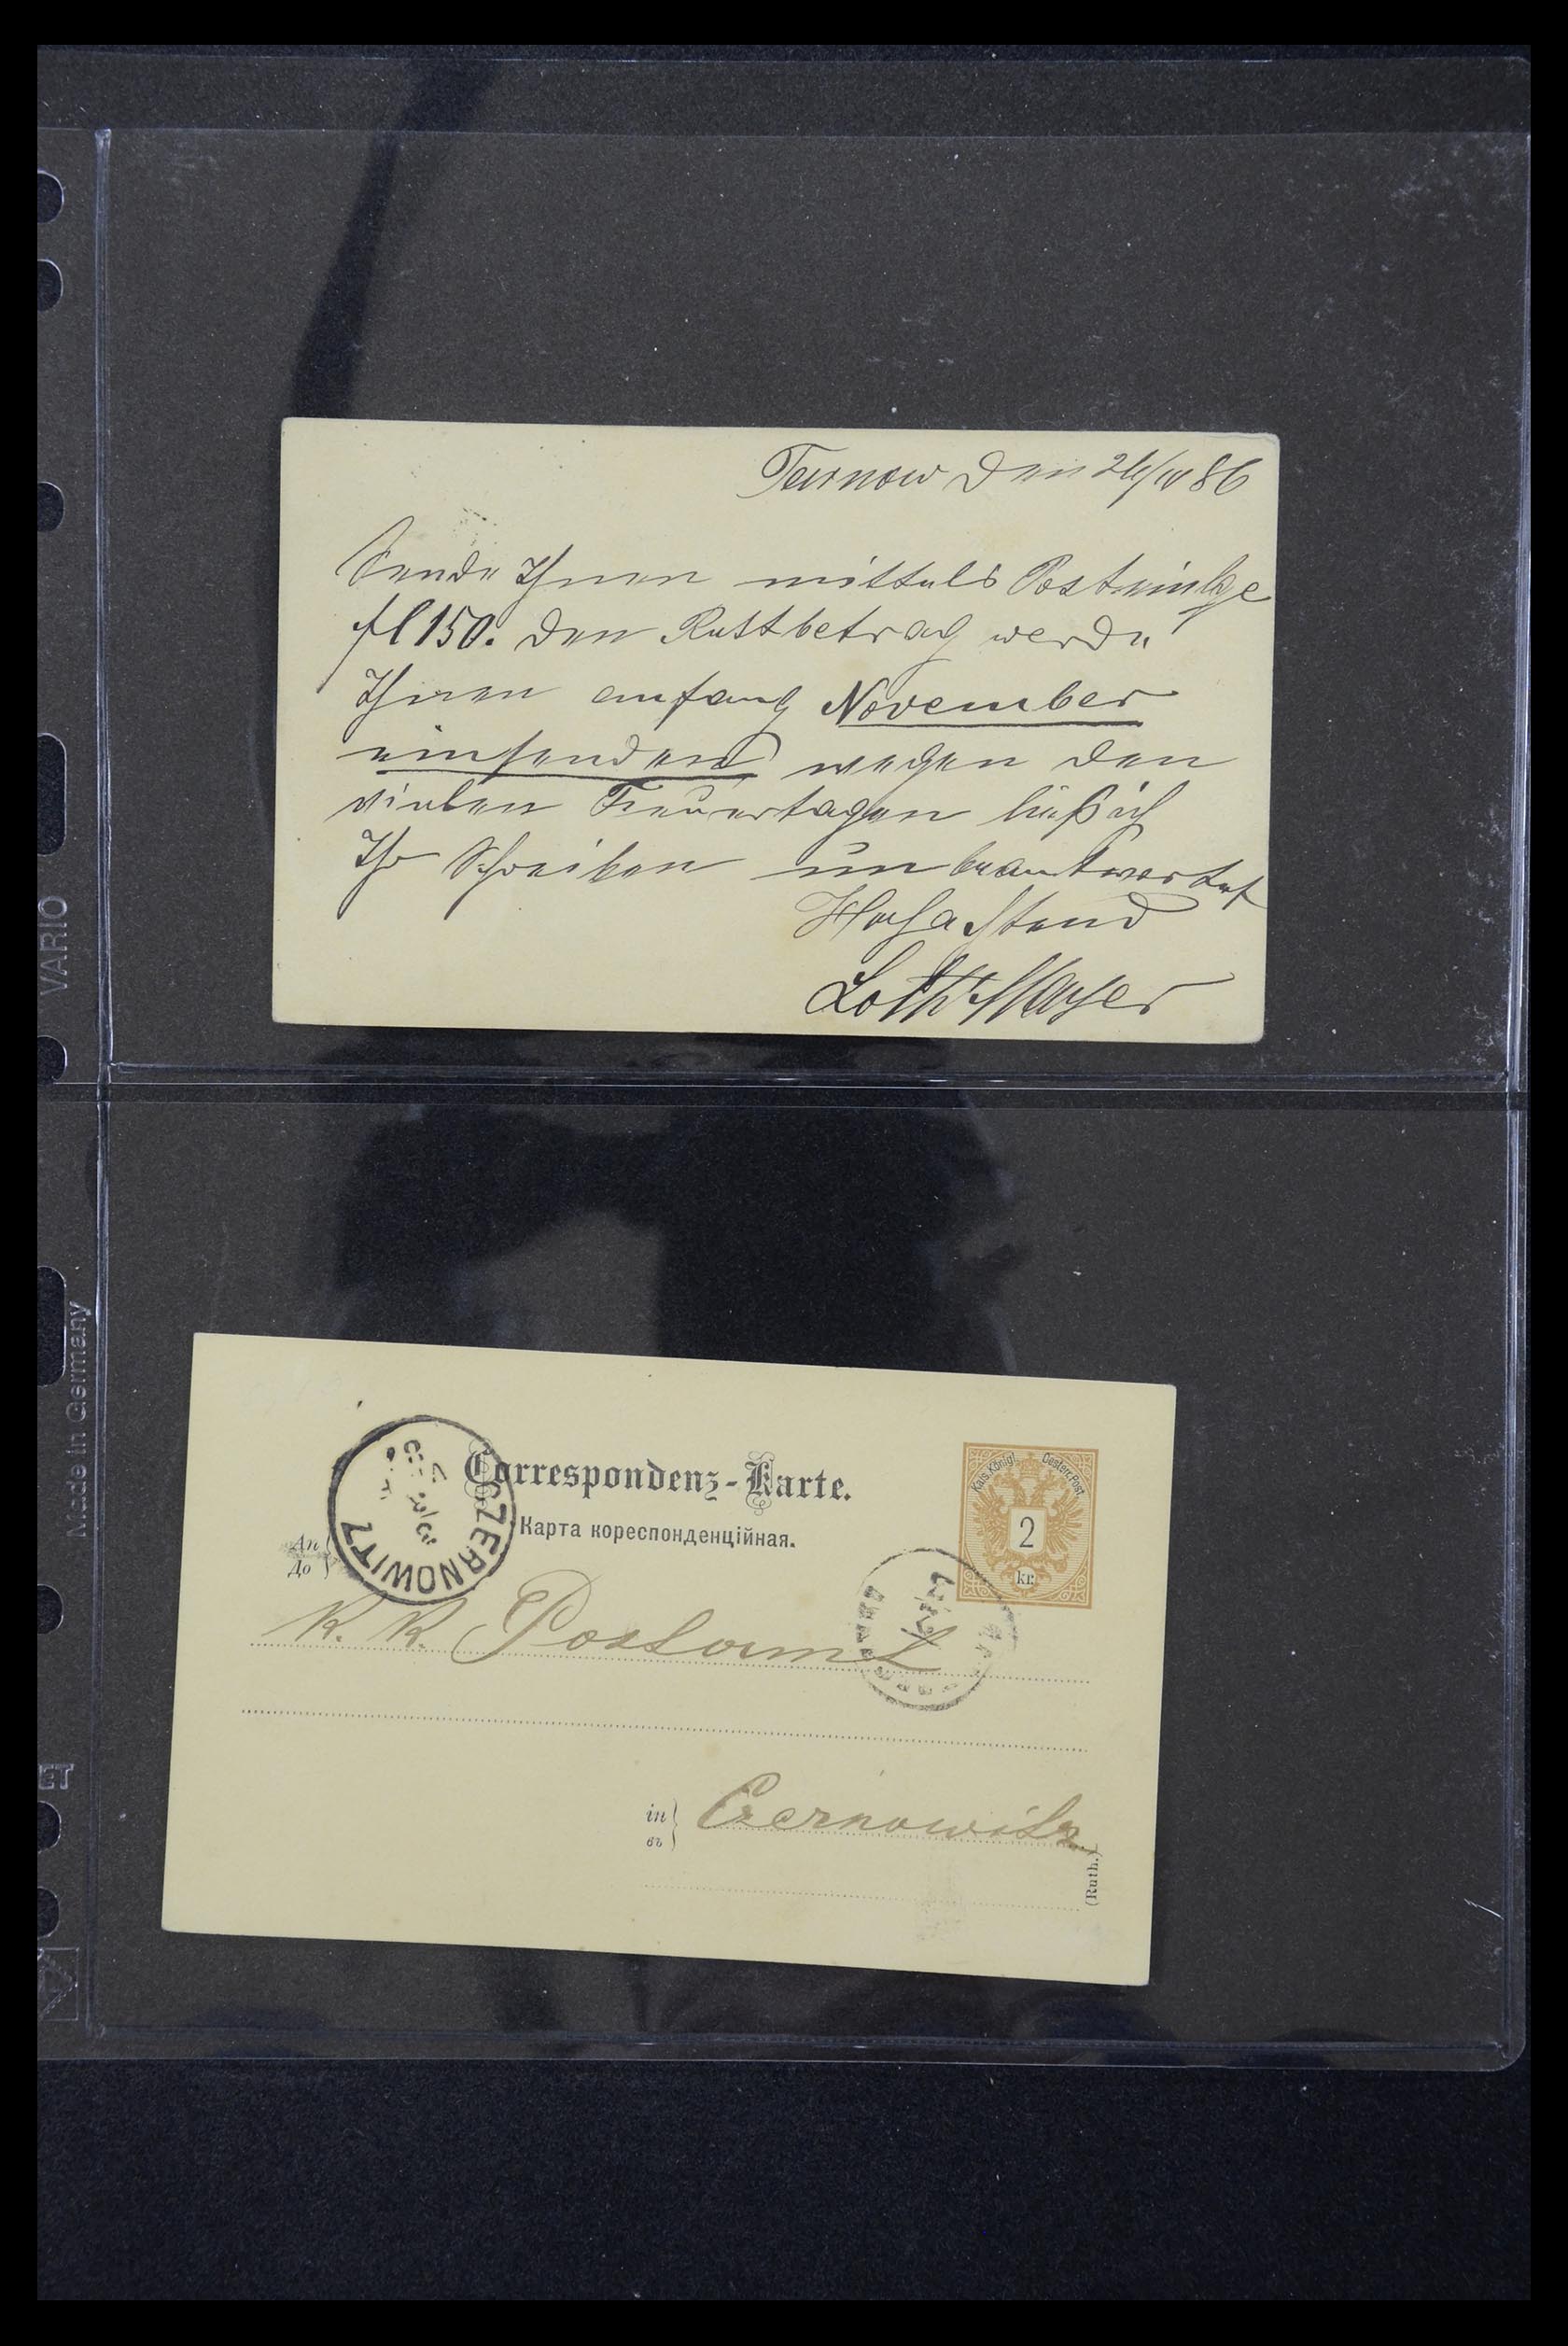 Tarnow den 86
Sende Ihnen mittels Posteinlage
fl 150. den Restbetrag werde
Ihnen anfang November
einsenden wegen den
vielen Feiertagen ließ ich
Ihr Schreiben unbeantwortet
Hochachtend
Mayer
Correspondenz-Karte.
Карта кореспонденційная.
CZERNOWITZ
Kais. Königl. Oesterr. Post
2
kr.
An
До
K. K. Postamt
in
въ
Czernowitz
(Ruth.)
VARIO
Made in Germany
ET